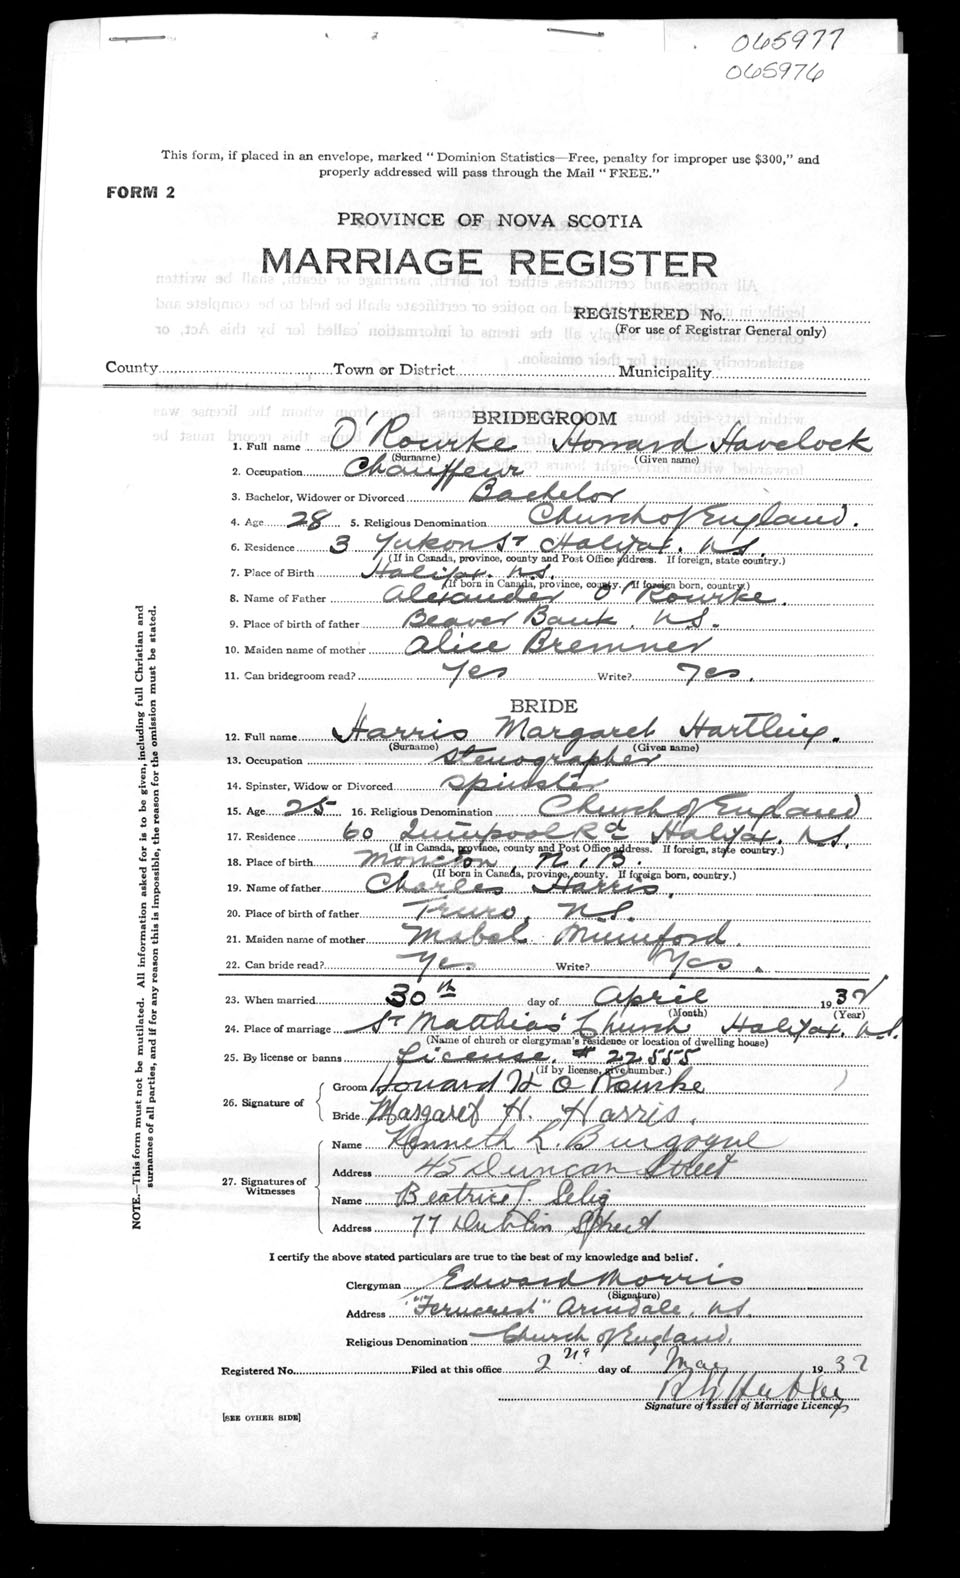 065977
065976
This form, if placed in an envelope, marked "Dominion Statistics—Free, penalty for improper use $300," and
properly addressed will pass through the Mail "FREE."
FORM 2
PROVINCE OF NOVA SCOTIA
MARRIAGE REGISTER
REGISTERED No.
(For use of Registrar General only)
County Town or District Municipality
BRIDEGROOM
1. Full name O'Rourke Howard Havelock
(Surname) (Given name)
2. Occupation Chauffeur
3. Bachelor, Widower or Divorced Bachelor
4. Age 28 5. Religious Denomination Church of England.
6. Residence 3 Yukon St Halifax. N.S.
(If in Canada, province, county and Post Office address. If foreign, state country.)
7. Place of Birth Halifax. N.S.
(If born in Canada, province, county. If foreign born, country.)
8. Name of Father Alexander O'Rourke.
9. Place of birth of father Beaver Bank. N.S.
10. Maiden name of mother Alice Bremner
11. Can bridegroom read? Yes Write? Yes.
BRIDE
12. Full name Harris Margaret Hartling.
(Surname) (Given name)
13. Occupation Stenographer
14. Spinster, Widow or Divorced Spinster
15. Age 25 16. Religious Denomination Church of England
17. Residence 60 Quinpool Rd Halifax. N.S.
(If in Canada, province, county and Post Office address. If foreign, state country.)
18. Place of birth Moncton, N.B.
(If born in Canada, province, county. If foreign born, country.)
19. Name of father Charles Harris.
20. Place of birth of father Truro, N.S.
21. Maiden name of mother Mabel Mumford.
22. Can bride read? Yes Write? Yes.
23. When married 30th day of April 1932
(Month) (Year)
24. Place of marriage St Matthias' Church Halifax. N.S.
(Name of church or clergyman's residence or location of dwelling house)
25. By license or banns License. # 22555
(If by license, give number.)
26. Signature of
Groom Howard H O'Rourke
Bride Margaret H. Harris.
27. Signatures of Witnesses
Name Kenneth L. Burgoyne
Address 45 Duncan Street
Name Beatrice J. Selig
Address 77 Dublin Street
I certify the above stated particulars are true to the best of my knowledge and belief.
Clergyman Edward Morris
(Signature)
Address "Ferncrest" Armdale. N.S.
Religious Denomination Church of England.
Registered No. Filed at this office 2nd day of May 1932
Signature of Issuer of Marriage Licences
[SEE OTHER SIDE]
NOTE.—This form must not be mutilated. All information asked for is to be given, including full Christian and
surnames of all parties, and if for any reason this is impossible, the reason for the omission must be stated.